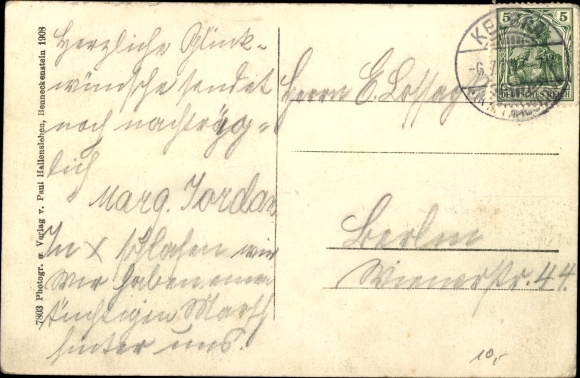 7803 Photogr. u Verlag v. Paul Hallensleben, Benneckenstein 1908
Herzliche Glück-
wünsche sendet
noch nachträg-
lich
Marg. Jordan
In X schlafen wir
wir haben einen
tüchtigen Marsch
hinter uns.
5 5
DEUTSCHES REICH
-6.7
Herrn E. Lossag
Berlin
Wienerstr. 44.
10,-